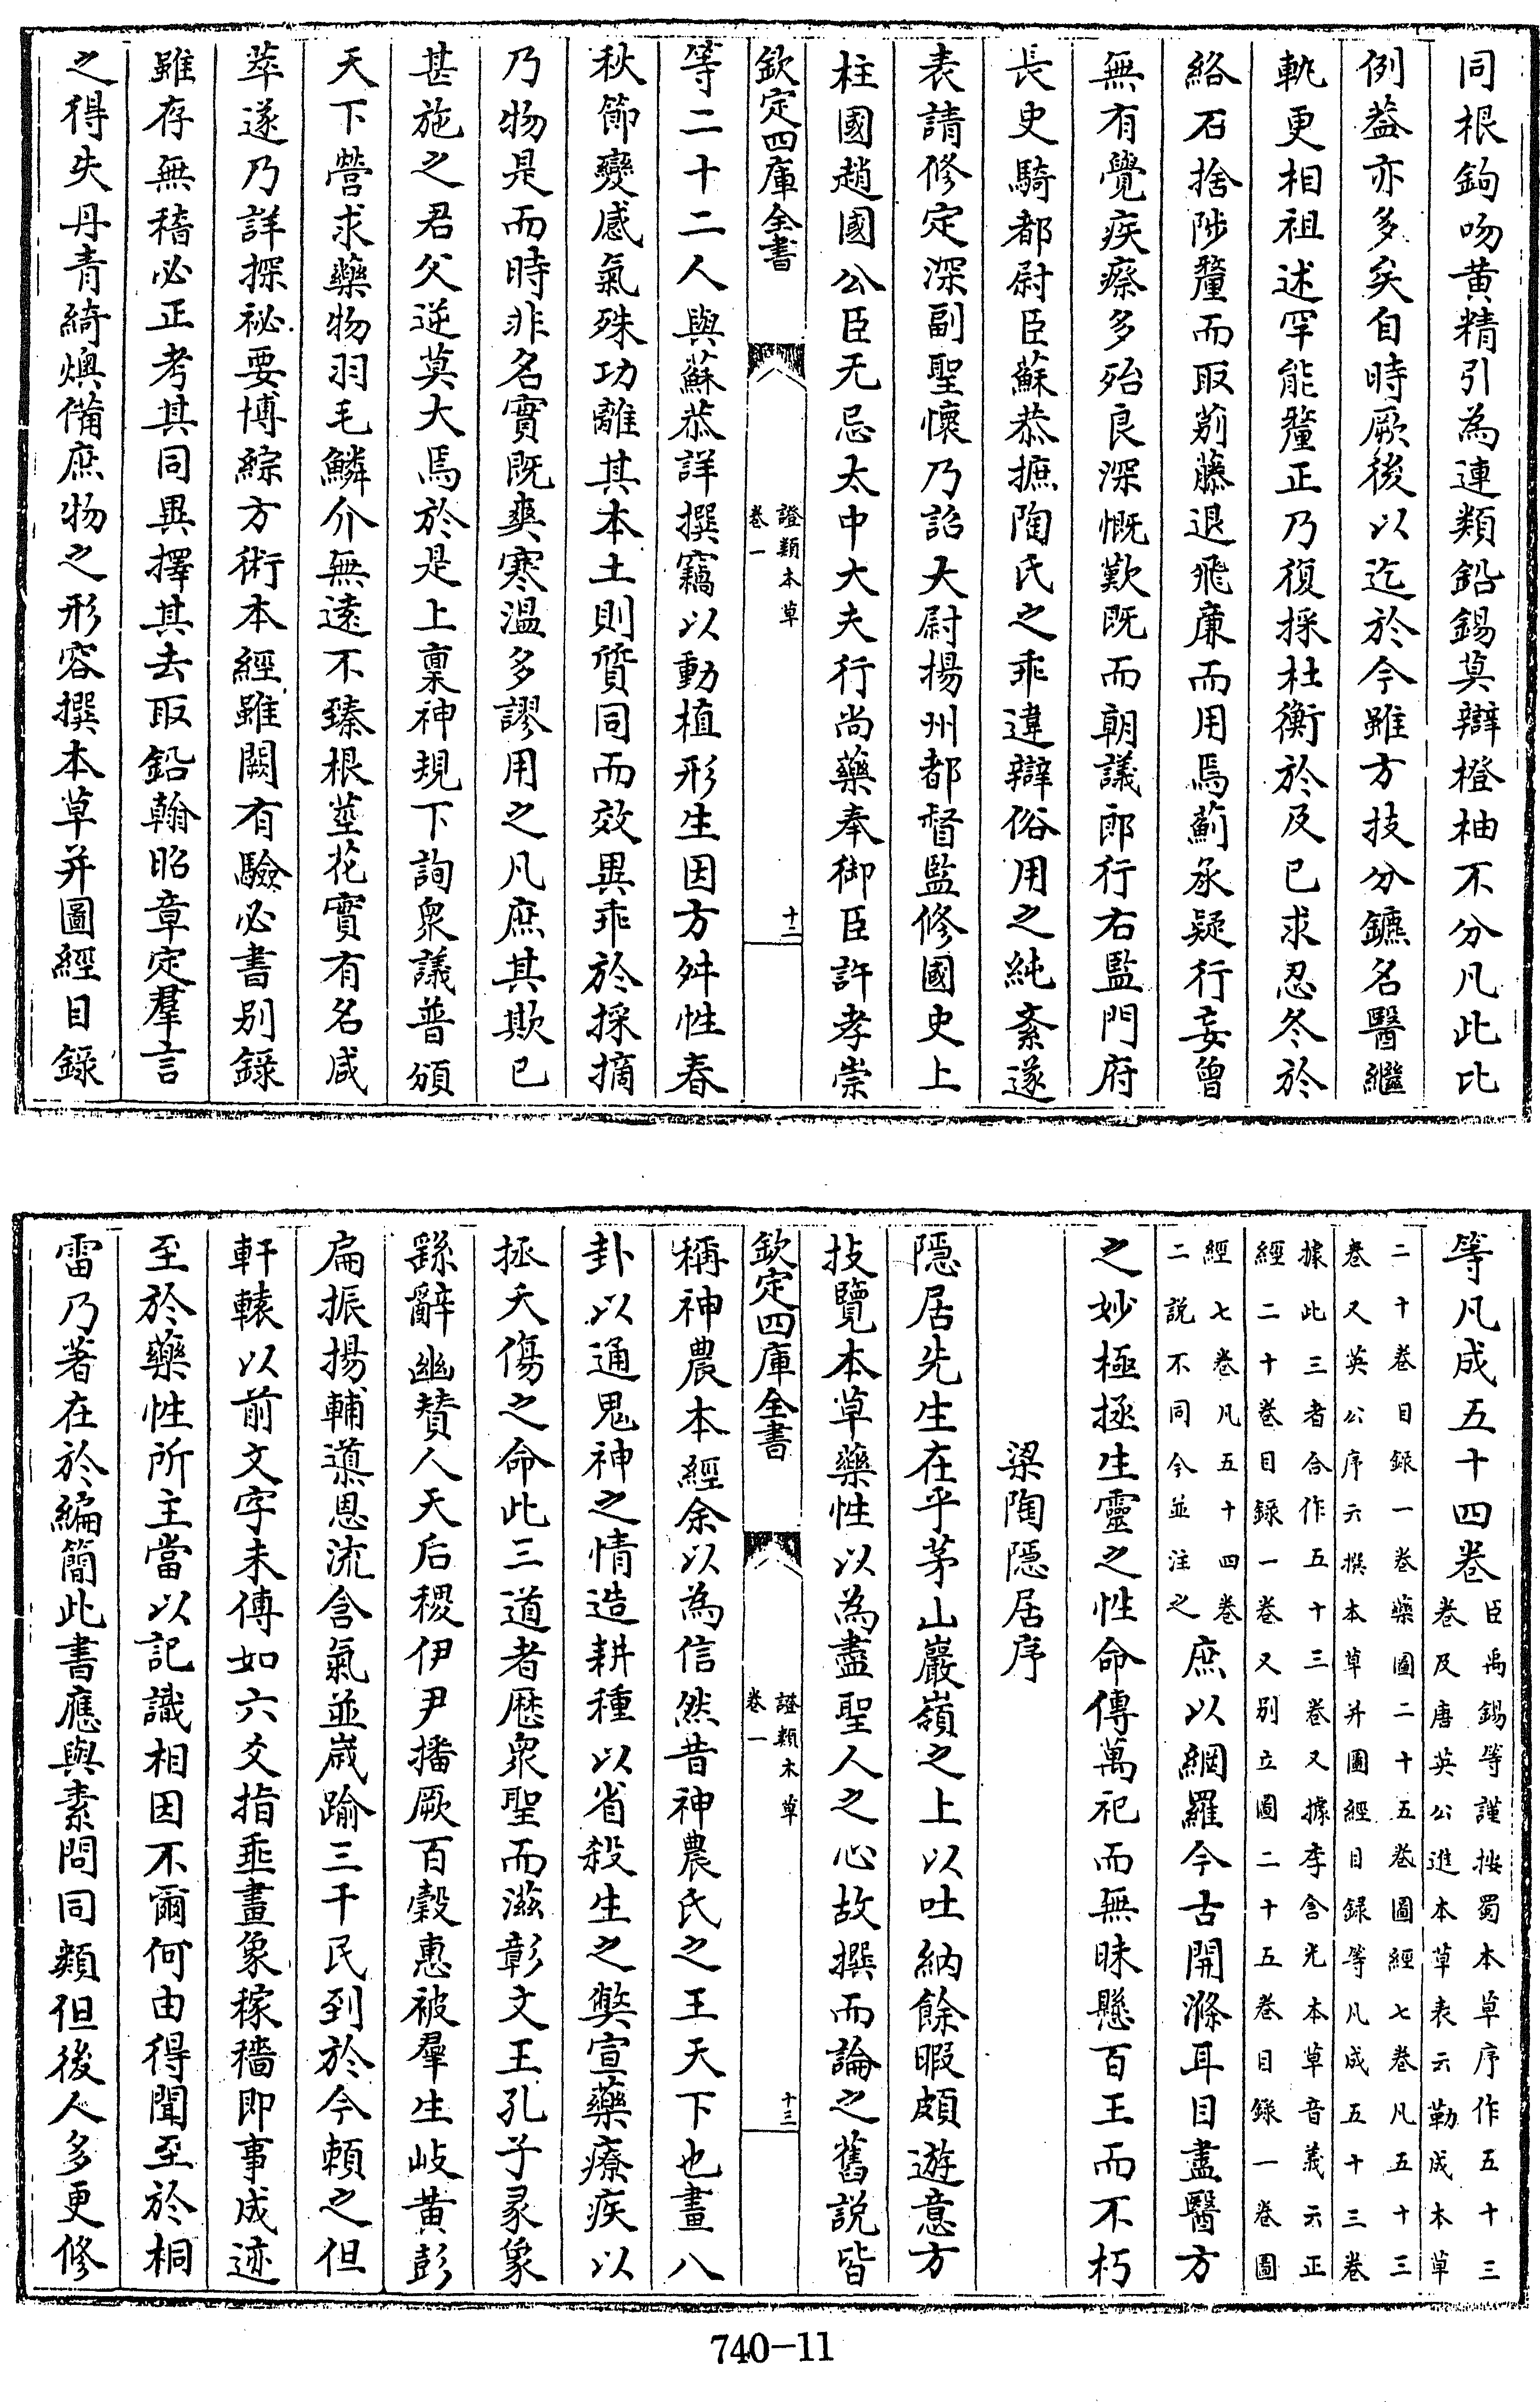 同根鉤吻黄精引為連類鉛錫莫辯橙柚不分凡此比
例葢亦多矣自時厥後以迄於今雖方技分鑣名醫繼
軌更相祖述罕能釐正乃復採杜衡於及已求忍冬於
絡石捨陟釐而取莂藤退飛廉而用馬薊承疑行妄曾
無有覺疾瘵多殆良深慨歎既而朝議郎行右監門府
長史騎都尉臣蘇恭摭陶氏之乖違辯俗用之純紊遂
表請修定深副聖懷乃詔大尉揚州都督監修國史上
柱國趙國公臣无忌太中大夫行尚藥奉御臣許孝崇
欽定四庫全書
證類本草
卷一
十二
等二十二人與蘇恭詳撰竊以動植形生因方舛性春
秋節變感氣殊功離其本土則質同而效異乖於採摘
乃物是而時非名實既爽寒温多謬用之凡庶其欺已
甚施之君父逆莫大焉於是上稟神規下詢衆議普頒
天下營求藥物羽毛鱗介無逺不臻根莖花實有名咸
萃遂乃詳探祕要博綜方術本經雖闕有驗必書别錄
雖存無稽必正考其同異擇其去取鉛翰昭章定羣言
之得失丹青綺煥備庶物之形容撰本草并圖經目錄
等凡成五十四卷
臣禹錫等謹按蜀本草序作五十三
卷及唐英公進本草表云勒成本草
二十卷目録一卷藥圖二十五卷圖經七卷凡五十三
卷又英公序云撰本草并圖經目録等凡成五十三卷
據此三者合作五十三卷又據李含光本草音義云正
經二十卷目録一卷又別立圖二十五卷目錄一卷圖
經七卷凡五十四卷
二説不同今並注之
庶以網羅今古開滌耳目盡醫方
之妙極拯生靈之性命傳萬祀而無昧懸百王而不朽
梁陶隱居序
隱居先生在乎茅山巖嶺之上以吐納餘暇頗遊意方
技覽本草藥性以為盡聖人之心故撰而論之舊説皆
欽定四庫全書
證類本草
卷一
十三
稱神農本經余以為信然昔神農氏之王天下也畫八
卦以通鬼神之情造耕種以省殺生之弊宣藥療疾以
拯夭傷之命此三道者歴衆聖而滋彰文王孔子彖象
繇辭幽贊人天后稷伊尹播厥百穀惠被羣生岐黄彭
扁振揚輔導恩流含氣並歲踰三千民到於今賴之但
軒轅以前文字未傳如六爻指垂畫象稼穡即事成迹
至於藥性所主當以記識相因不爾何由得聞至於桐
雷乃著在於編簡此書應與素問同類但後人多更修
740-11